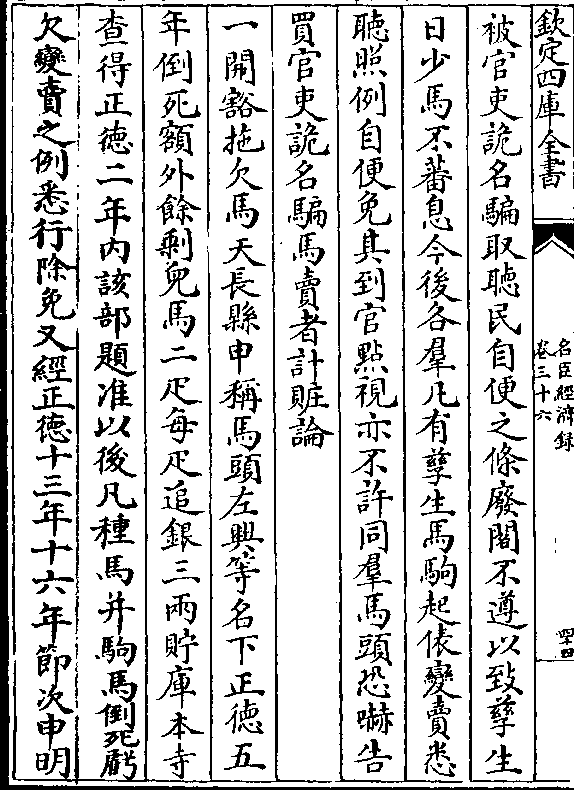 欽定四庫全書
名臣經濟録
卷三十六
四十四
被官吏詭名騙取聽民自便之條廢閣不遵以致孳生
日少馬不蕃息今後各羣凡有孳生馬駒起俵變賣悉
聽照例自便免其到官點視亦不許同羣馬頭恐嚇告
買官吏詭名騙馬賣者計贓論
一開豁拖欠馬天長縣申稱馬頭左興等名下正德五
年倒死額外餘剩兒馬二疋每疋追銀三兩貯庫本寺
查得正德二年內該部題准以後凡種馬并駒馬倒死虧
欠變賣之例悉行除免又經正德十三年十六年節次申明